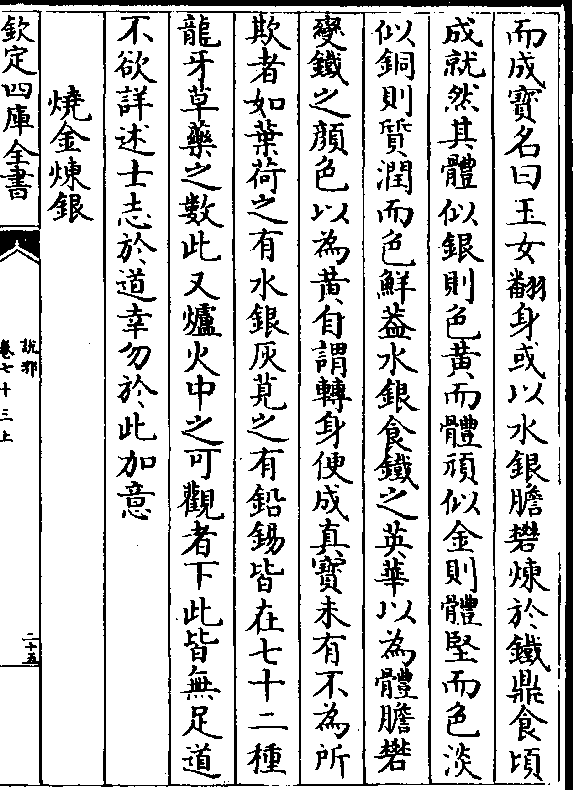 而成寳名曰玉女翻身或以水銀膽礬煉於鐵鼎食頃
成就然其體似銀則色黄而體頑似金則體堅而色淡
似銅則質潤而色鮮葢水銀食鐵之英華以為體膽礬
變鐵之顔色以為黄自謂轉身便成真寳未有不為所
欺者如葉荷之有水銀灰莧之有鉛錫皆在七十二種
龍牙草藥之數此又爐火中之可觀者下此皆無足道
不欲詳述士志於道幸勿於此加意
燒金煉銀
欽定四庫全書
說郛
卷七十三上
二十五